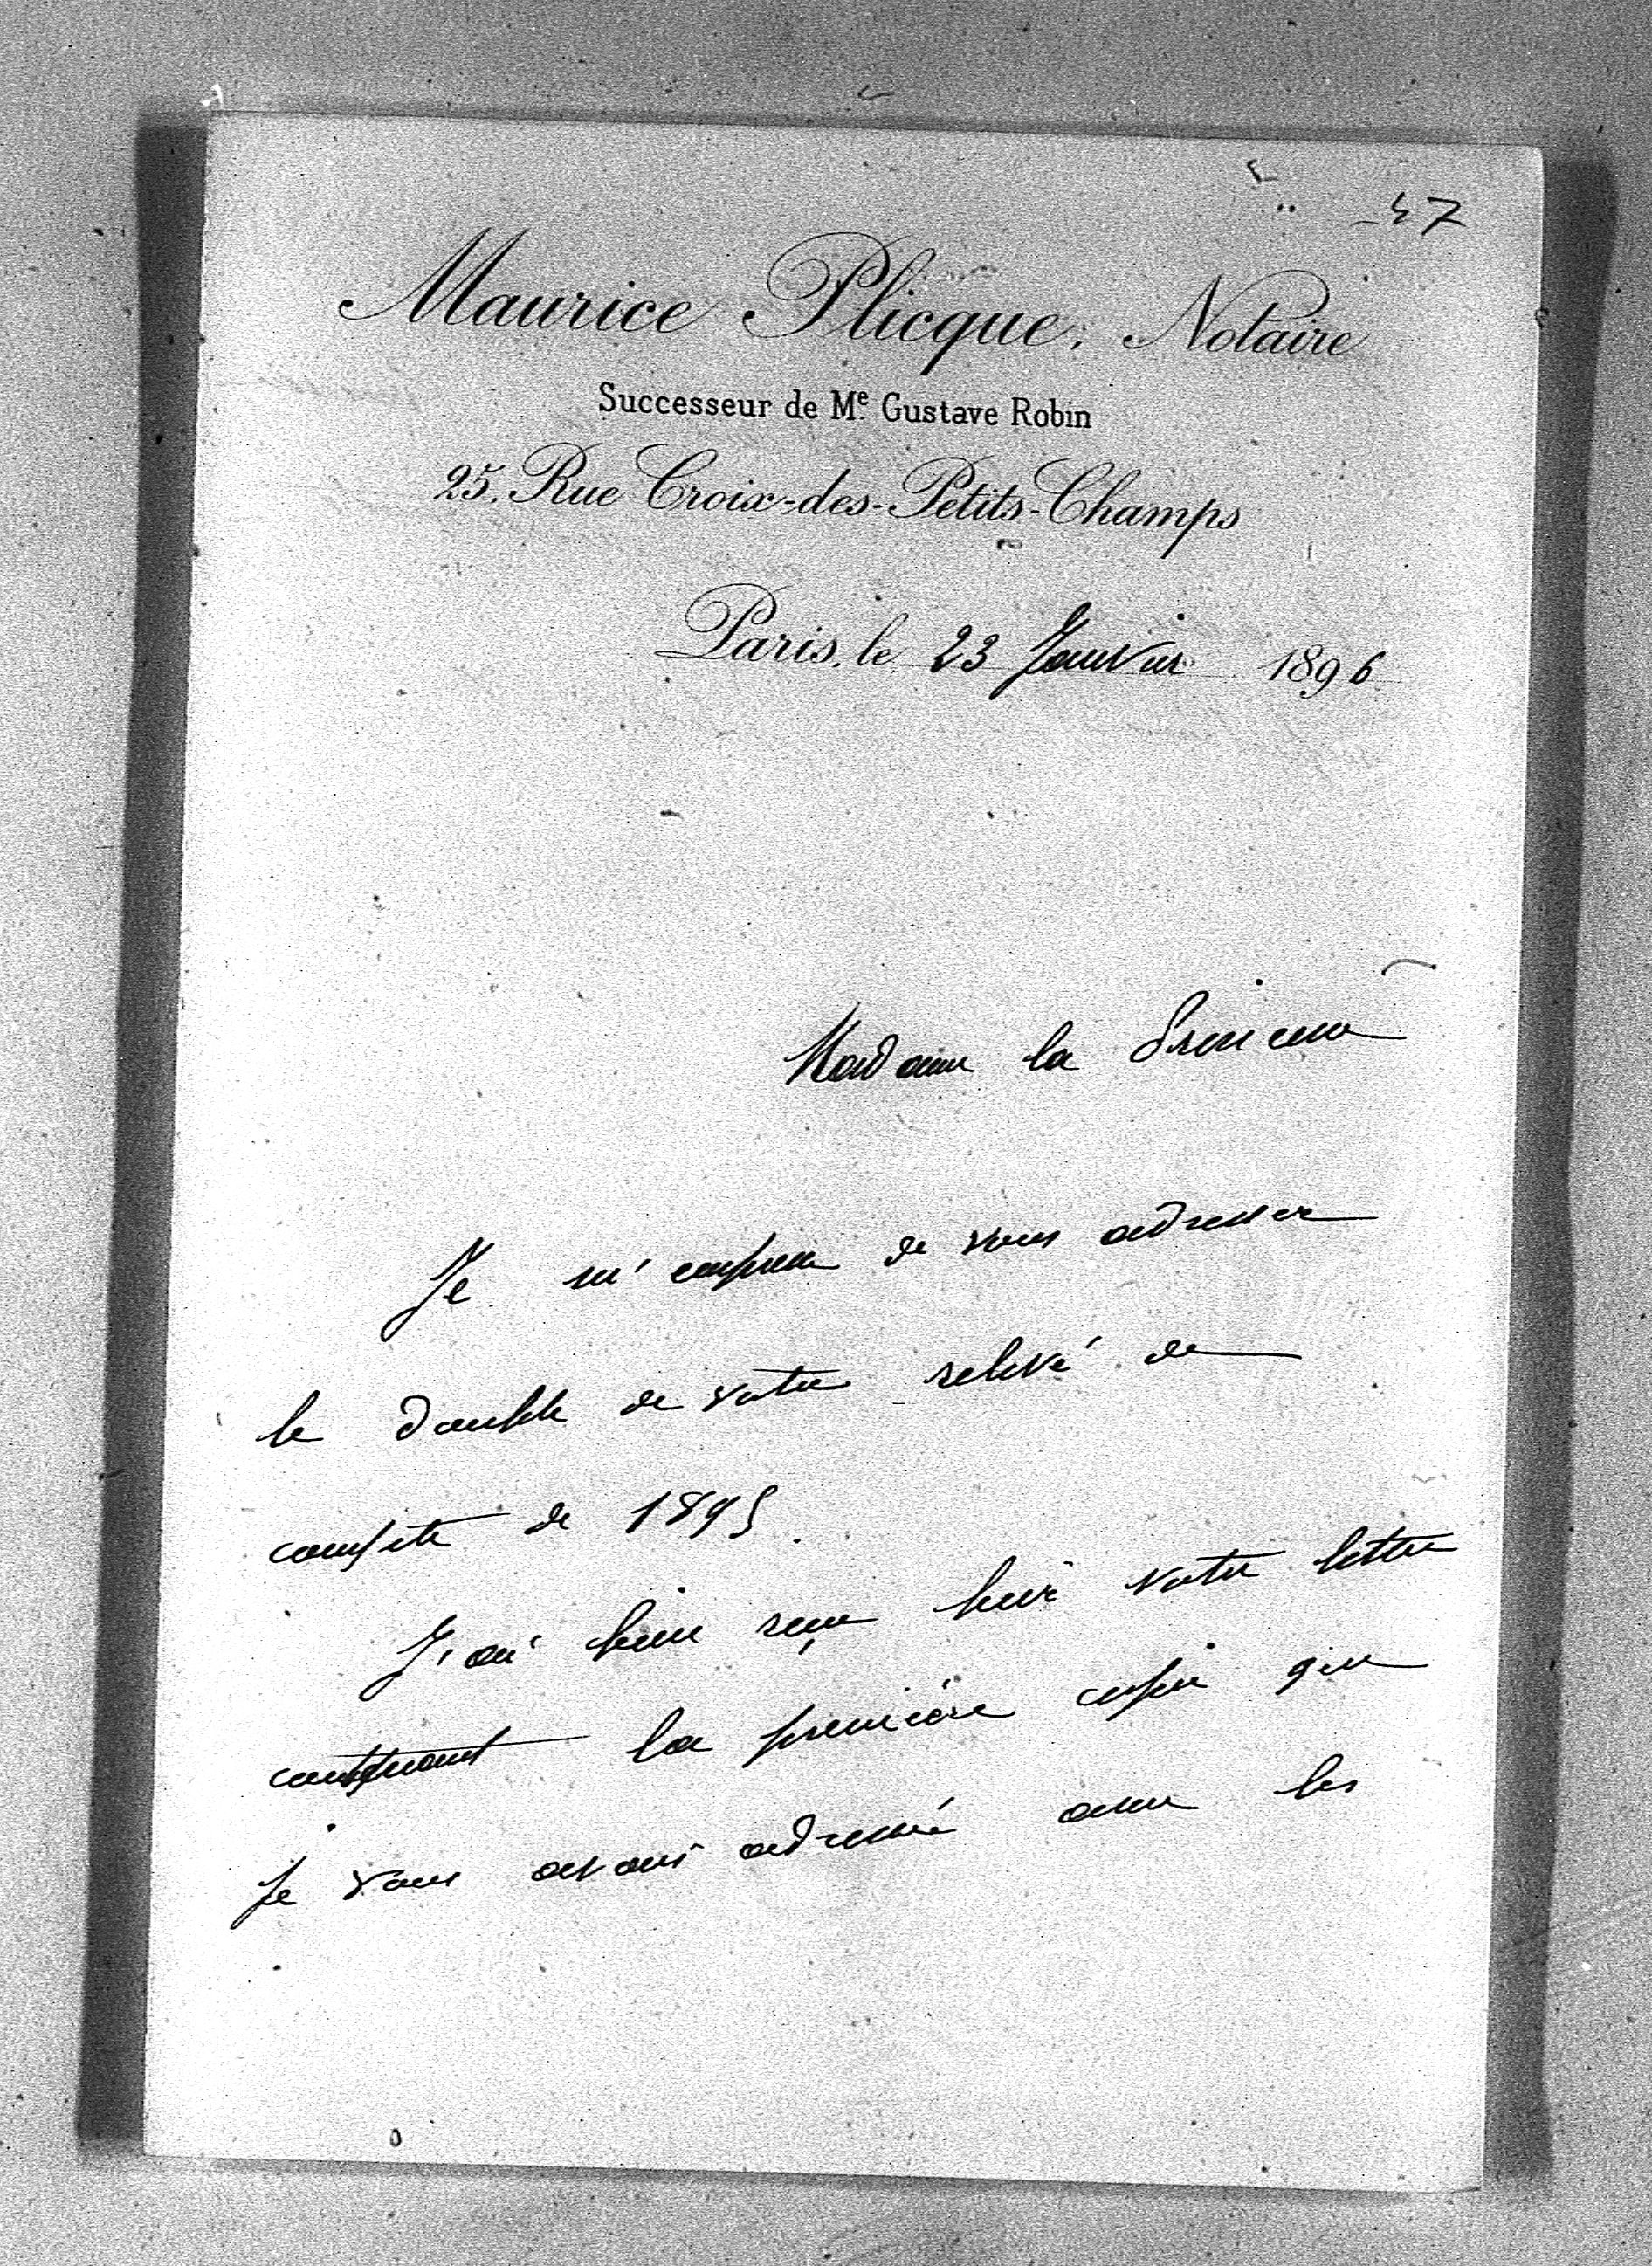 47
Maurice Plicque, Notaire
Successeur de Me Gustave Robin
25, Rue Croix-des-Petits-Champs
Paris, le 23 Janvier 1896
Madame la Princesse
Je m'empresse de vous adresser
le double de votre relevé de
compte de 1895.
J'ai bien reçu hier votre lettre
contenant la première copie que
je vous avais adressée avec les